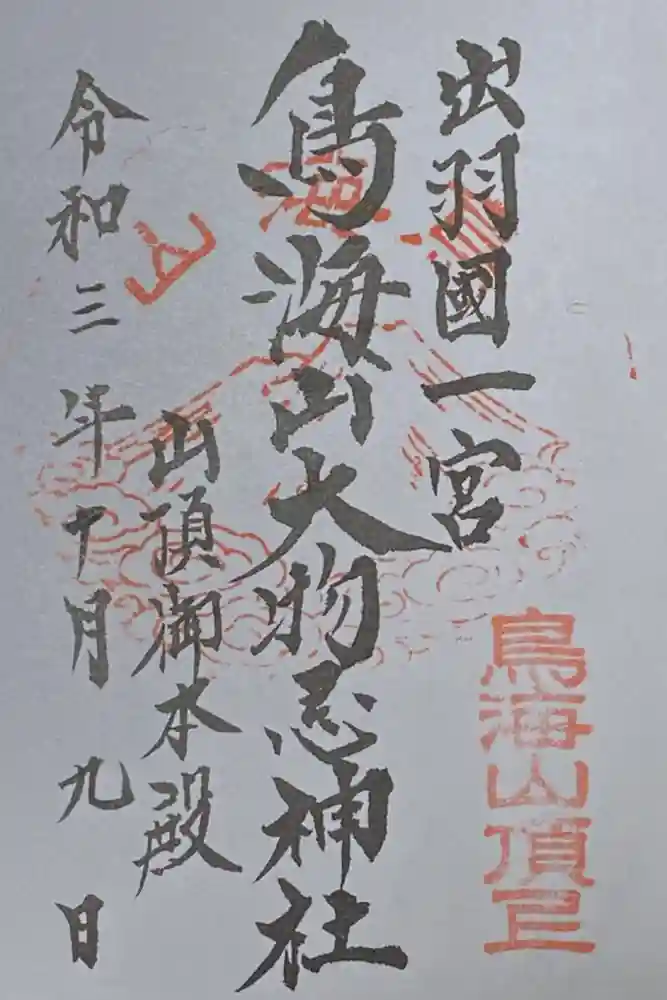 出羽國一宮
鳥海山大物忌神社
山頂御本殿
令和三年十月九日
鳥海山頂